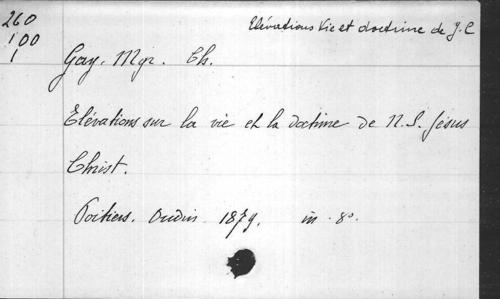 260
100
1
Elévations Vie et doctrine de J. C
Gay. Mgr. Ch.
Elévations sur la vie et la doctrine de N. S. Jésus
Christ.
Poitiers. Oudin 1879. in-8°.